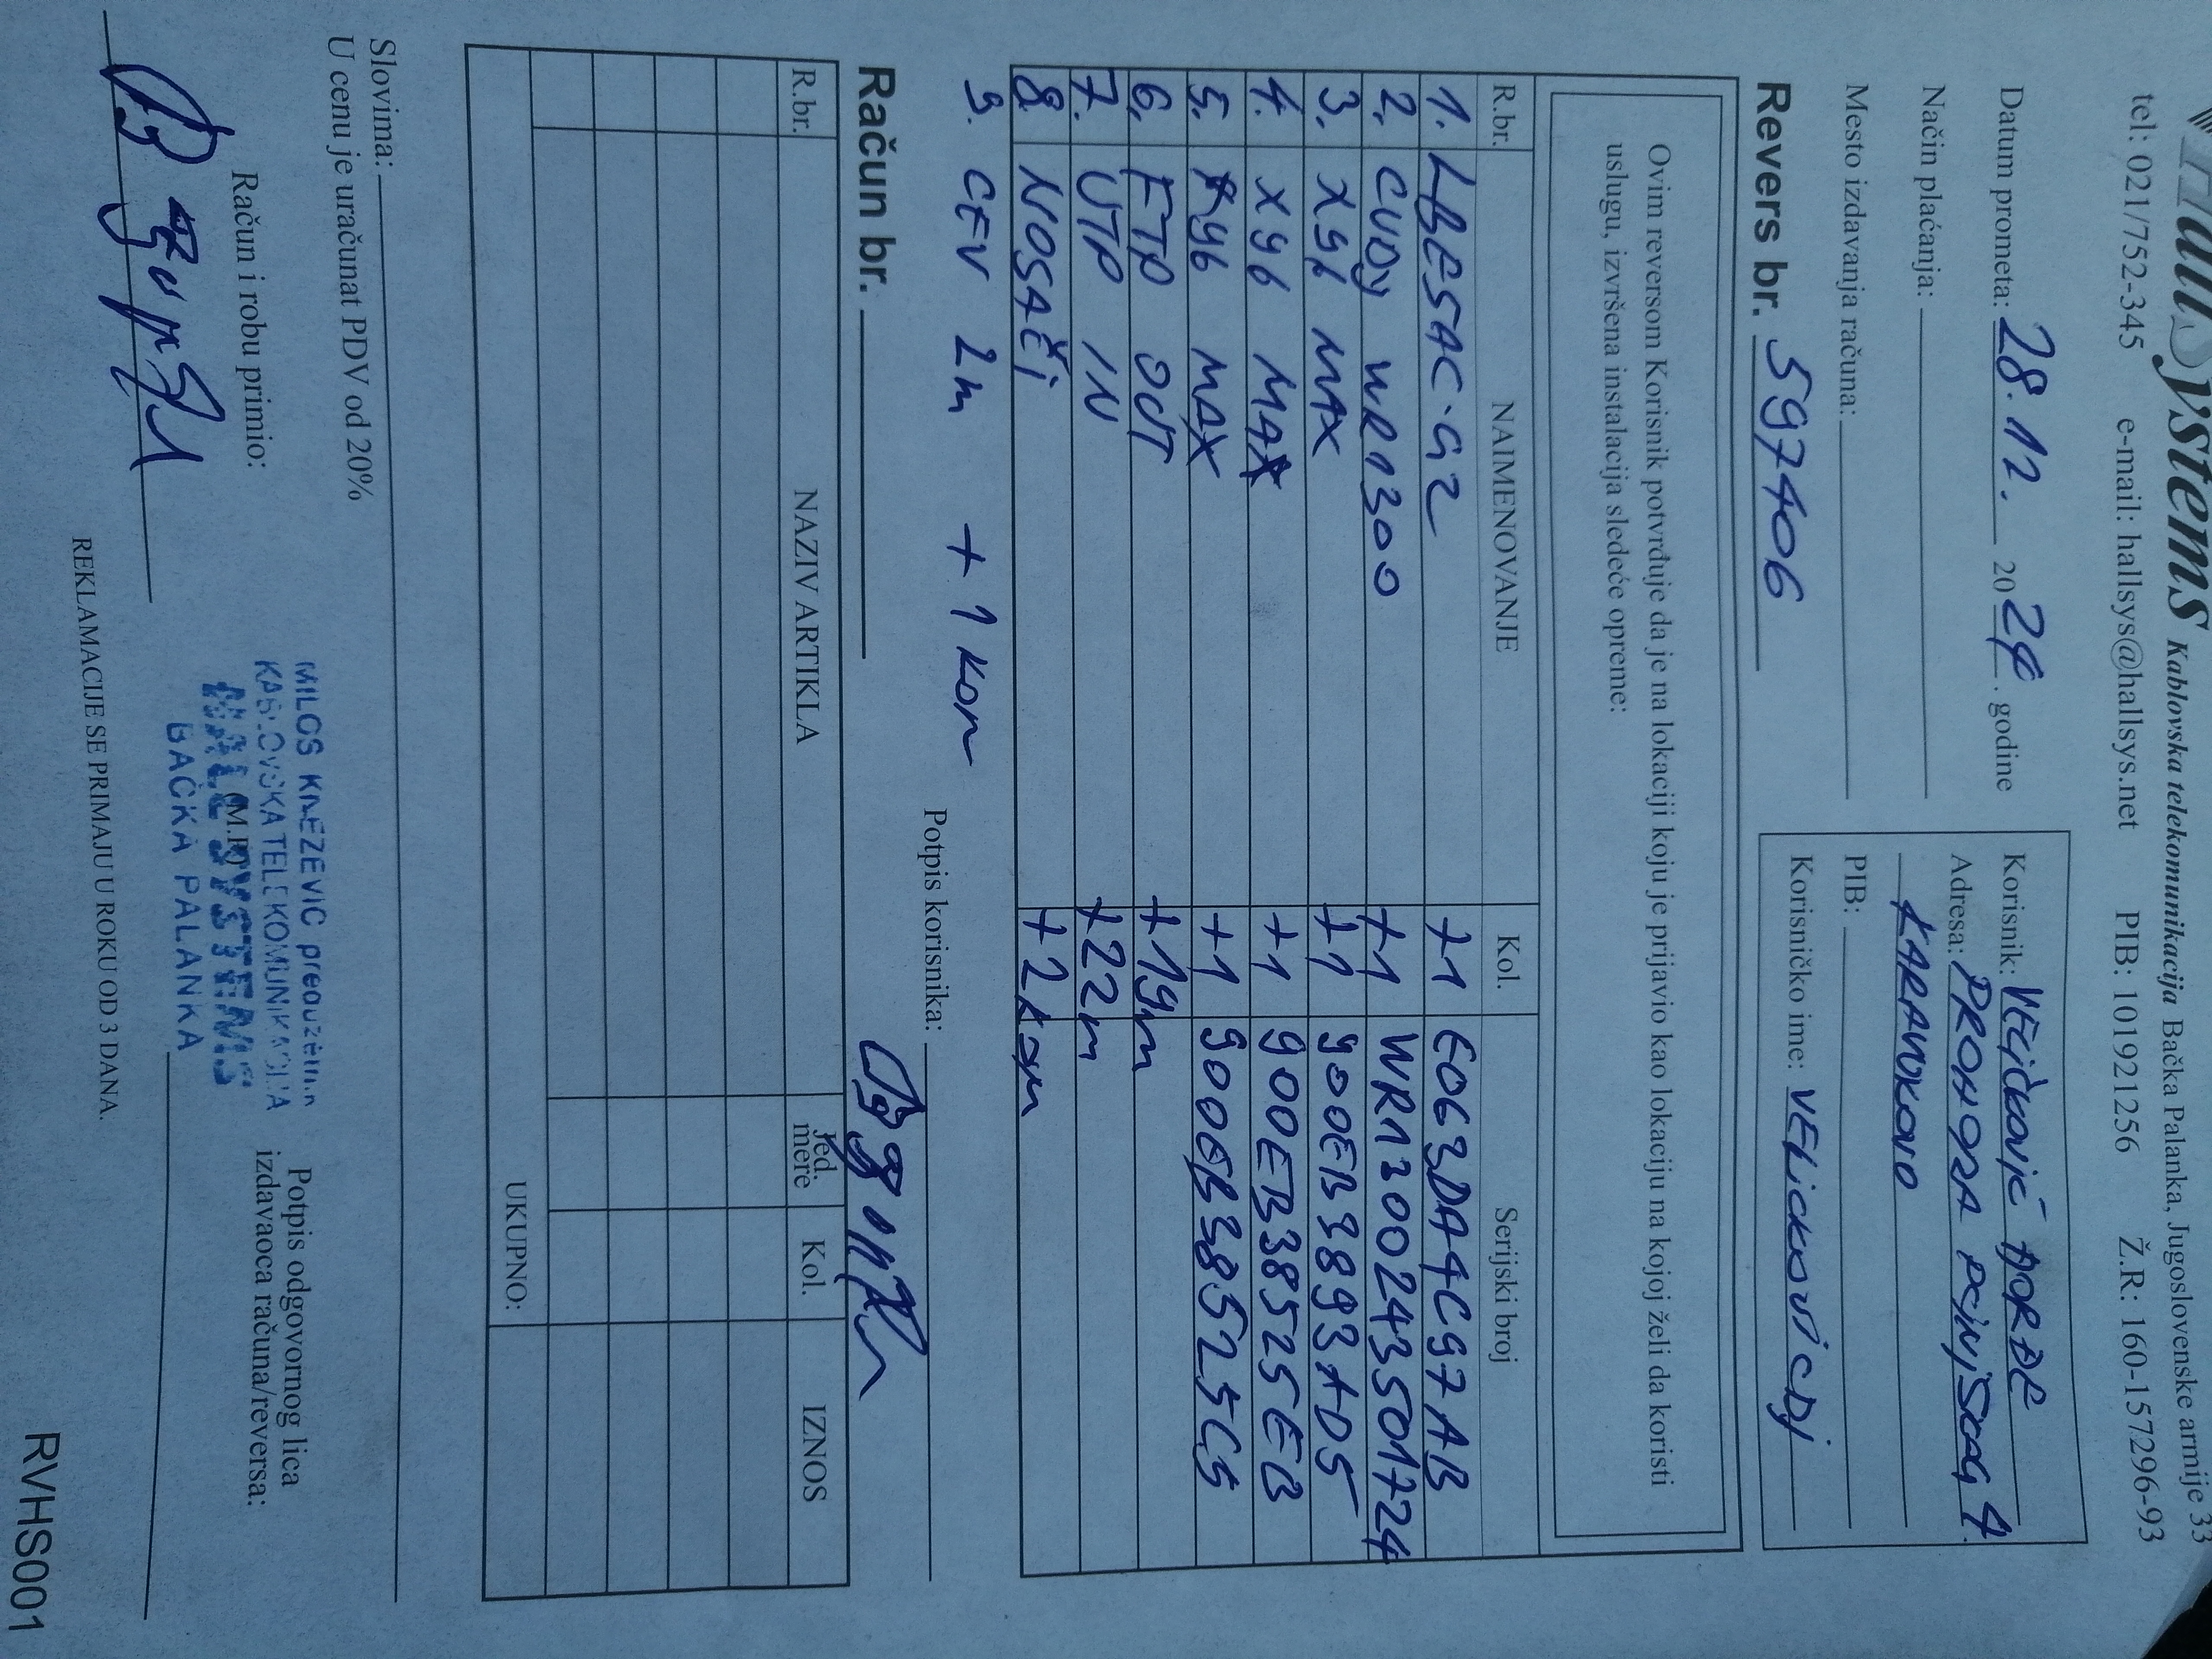 HallSystems Kablovska telekomunikacija Bačka Palanka, Jugoslovenske armije 33
tel: 021/752-345 e-mail: hallsys@hallsys.net PIB: 101921256 Ž.R: 160-157296-93
Datum prometa: 28.11. 2024. godine
Način plaćanja:
Mesto izdavanja računa:
Korisnik: VELIČKOVIĆ ĐORĐE
Adresa: PROHORA PČINJSKOG 4
KARAVUKOVO
PIB:
Korisničko ime: VELICKOVICDJ
Revers br. 597406
Ovim reversom Korisnik potvrđuje da je na lokaciji koju je prijavio kao lokaciju na kojoj želi da koristi
uslugu, izvršena instalacija sledeće opreme:
R.br. NAIMENOVANJE Kol. Serijski broj
1. LBE5AC-G2 +1 E063DA4C97AB
2. CUDY WR1300 +1 WR1300243501724
3. X96 MAX +1 900EB3893AD5
4. X96 MAX +1 900EB38525EB
5. X96 MAX +1 900EB38525C5
6. FTP OUT +19m
7. UTP IN +22m
8. NOSAČI +2kom
9. CEV 2m +1 kom
Potpis korisnika:
Račun br.
R.br. NAZIV ARTIKLA Jed. mere Kol. IZNOS
UKUPNO:
Slovima:
U cenu je uračunat PDV od 20%
Račun i robu primio:
MILOS KNEZEVIC preduzetnik
KABLOVSKA TELEKOMUNIKACIJA
HALL SYSTEMS
BAČKA PALANKA
(M.P.)
Potpis odgovornog lica
izdavaoca računa/reversa:
REKLAMACIJE SE PRIMAJU U ROKU OD 3 DANA.
RVHS001